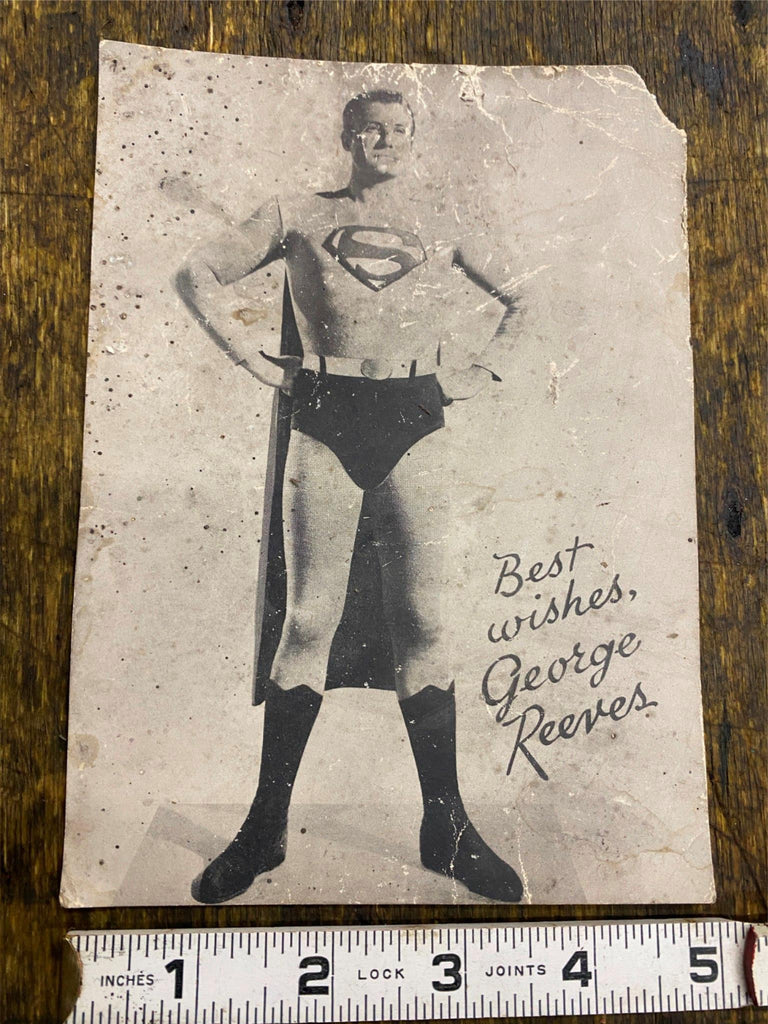 S
Best
wishes,
George
Reeves
INCHES 1 2 LOCK 3 JOINTS 4 5